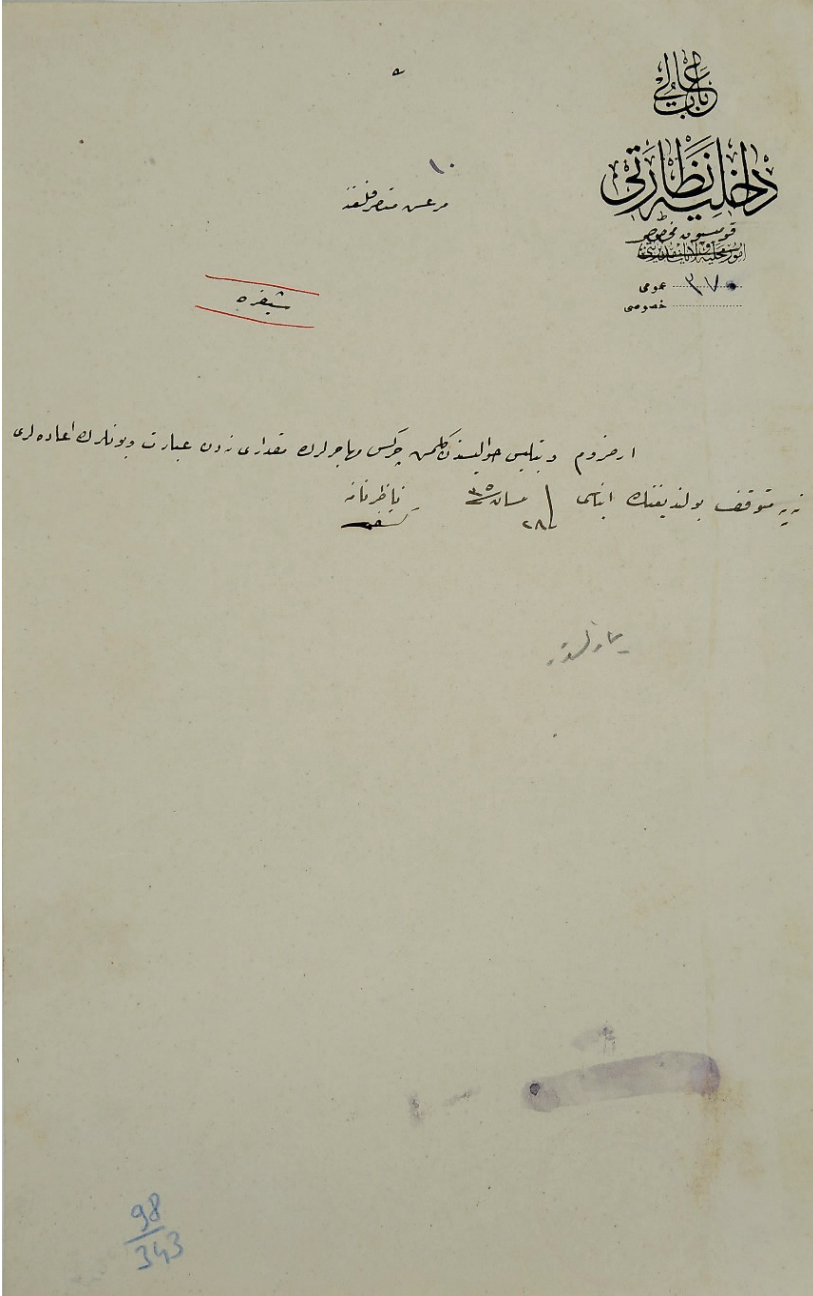 باب عالی
داخلیه نظارتی
قومسیون مخصوص
امور محلیه ولایات مدیریتی
عمومی ٣٧٠
خصوصی
١٠
مرعش متصرفلغنه
شیفره
ارضروم و بتلیس حوالیسندن کلمش چرکس مهاجرلرك مقداری نه‌دن عبارت و بونلرك اعاده‌لری
نه‌یه متوقف بولندیغنك انباسی ٢٨ نیسان ٣٥ ناظر نامنه
98
343